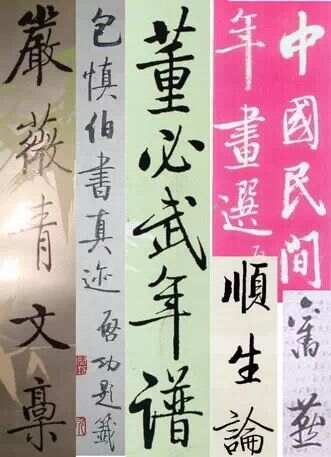 中國民間
年畫選
舊燕
順生論
董必武年谱
包慎伯書真迹
啟功題籤
嚴薇青文稾